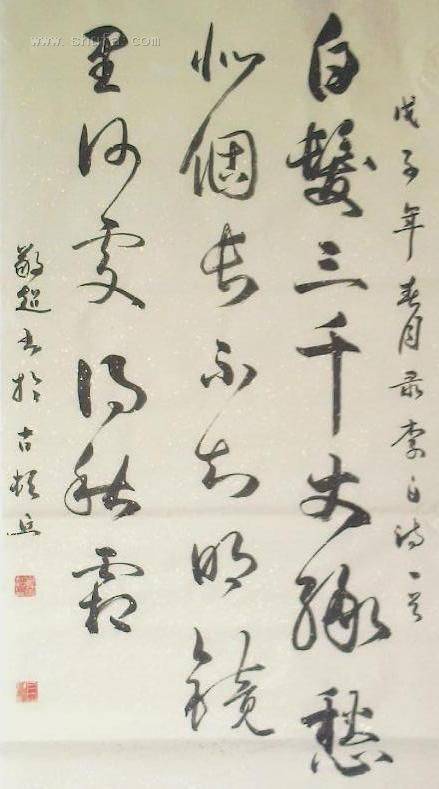 www.shufa.com
戊子年春月录李白詩一首
白髮三千丈緣愁
似個長不知明鏡
里何處得秋霜
敬超书於古頓丘